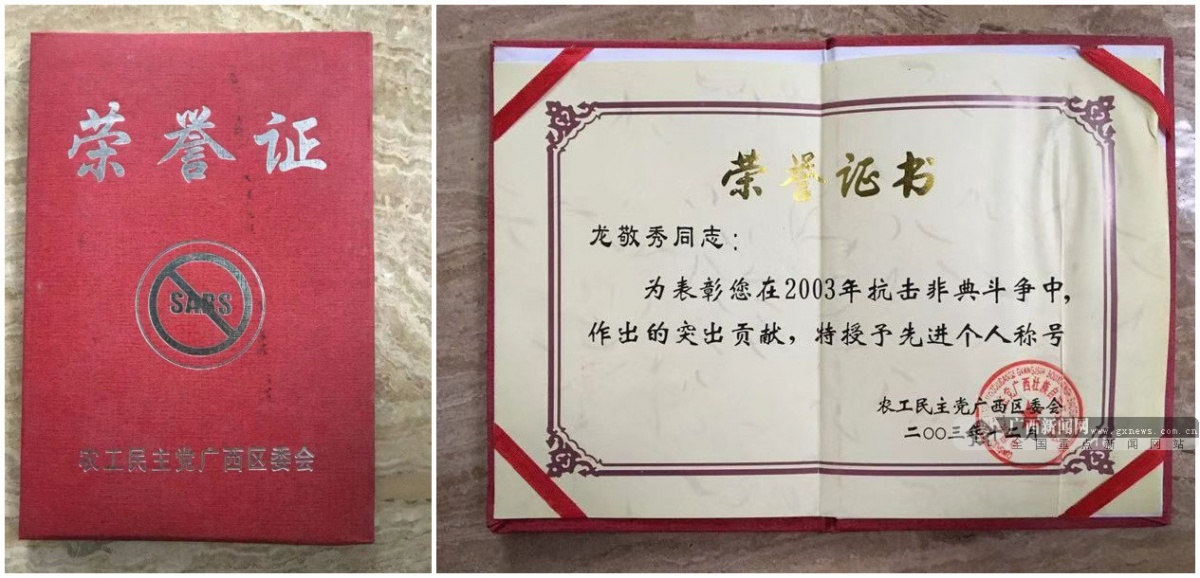 荣誉证
SARS
农工民主党广西区委会
荣誉证书
龙敬秀同志：
为表彰您在2003年抗击非典斗争中,
作出的突出贡献，特授予先进个人称号
农工民主党广西区委会
二〇〇三年十二月
广西新闻网
www.gxnews.com.cn
全国重点新闻网站